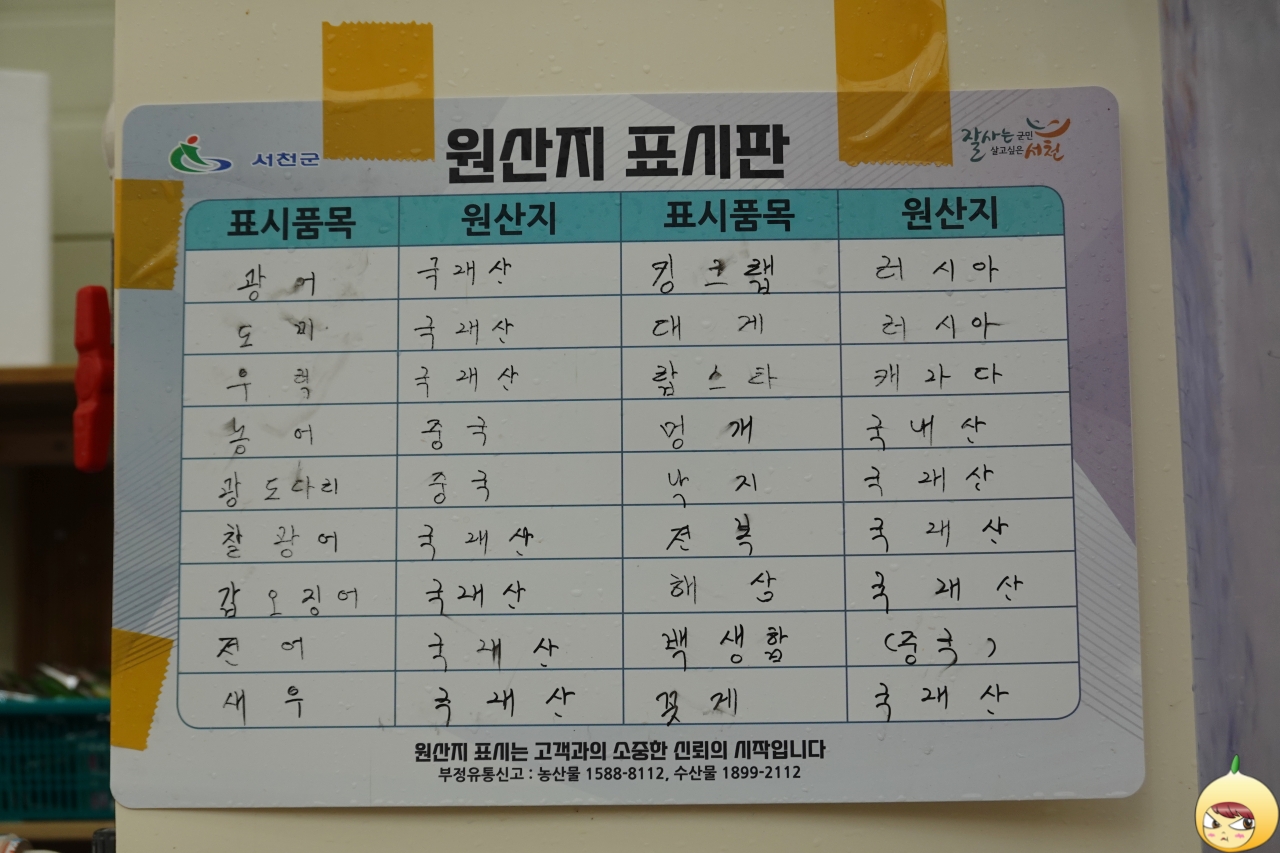 서천군
원산지 표시판
잘사는 군민
살고싶은 서천
표시품목 원산지 표시품목 원산지
광어 국래산 킹크랩 러시아
도미 국래산 대게 러시아
우럭 국래산 랍스타 캐라다
농어 중국 멍개 국내산
광도다리 중국 낙지 국래산
찰광어 국래산 전복 국래산
갑오징어 국래산 해삼 국래산
전어 국래산 백생합 (중국)
새우 국래산 꽃게 국래산
원산지 표시는 고객과의 소중한 신뢰의 시작입니다
부정유통신고 : 농산물 1588-8112, 수산물 1899-2112